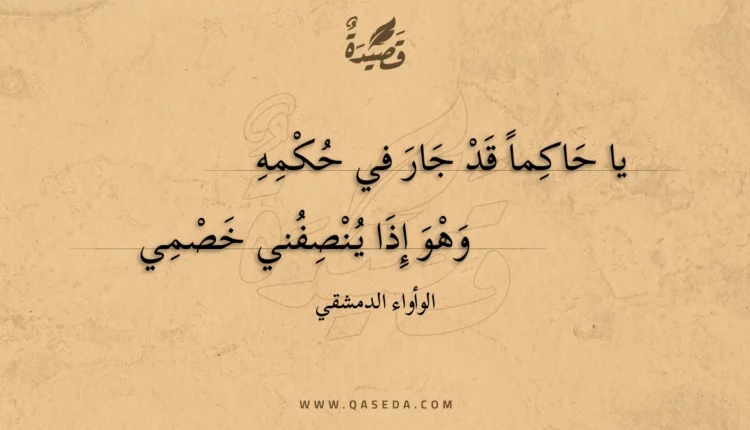 قَصِيْدَةٌ
يا حَاكِماً قَدْ جَارَ في حُكْمِهِ
وَهْوَ إِذَا يُنْصِفُني خَصْمِي
الوأواء الدمشقي
WWW.QASEDA.COM